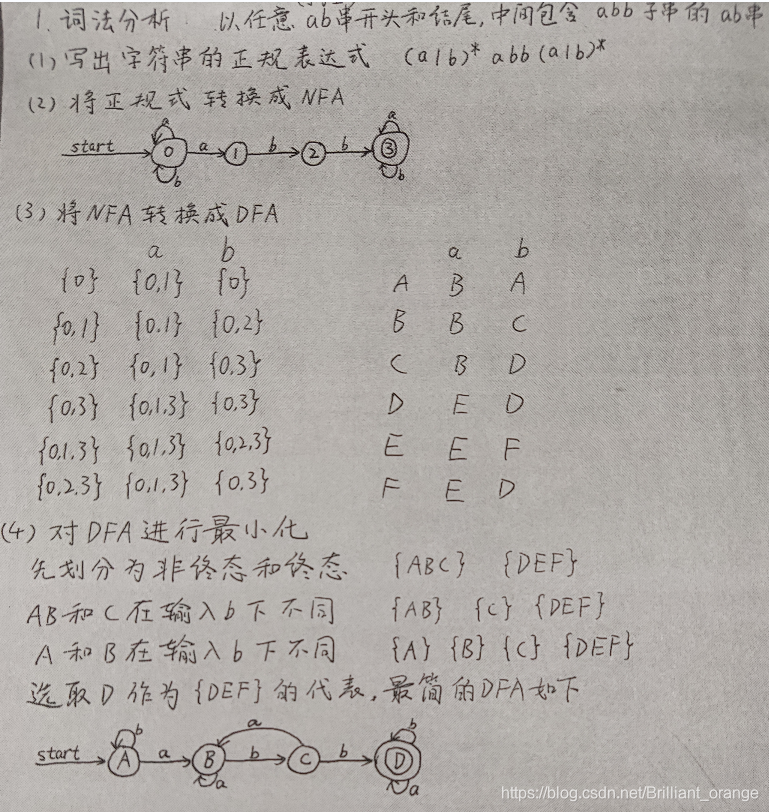 1. 词法分析 以任意ab串开头和结尾,中间包含 abb 子串的ab串
(1) 写出字符串的正规表达式 (a|b)* abb (a|b)*
(2) 将正规式转换成NFA
start 0 a b a 1 b 2 b 3 a b
(3) 将NFA转换成DFA
a b a b
{0} {0,1} {0} A B A
{0,1} {0.1} {0,2} B B C
{0,2} {0,1} {0,3} C B D
{0,3} {0,1,3} {0,3} D E D
{0,1.3} {0,1,3} {0,2,3} E E F
{0,2.3} {0,1,3} {0,3} F E D
(4) 对DFA进行最小化
先划分为非终态和终态 {ABC} {DEF}
AB和C在输入b下不同 {AB} {C} {DEF}
A和B在输入b下不同 {A} {B} {C} {DEF}
选取D作为{DEF}的代表,最简的DFA如下
start A b a B a b C a b D b a
https://blog.csdn.net/Brilliant_orange